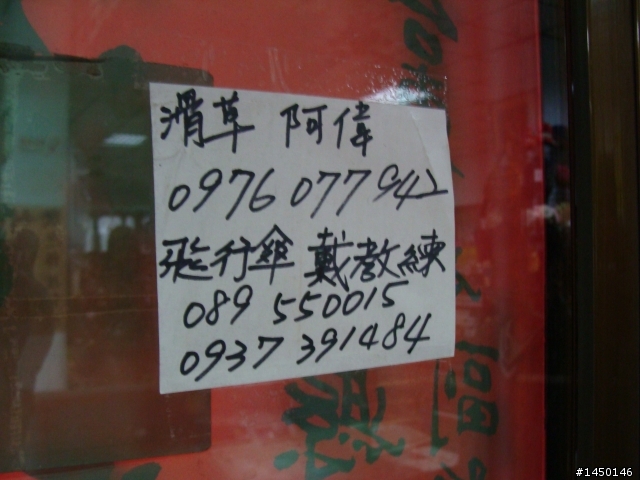 滑草 阿偉
0976 077942
飛行傘 戴教練
089 550015
0937 391484
#1450146